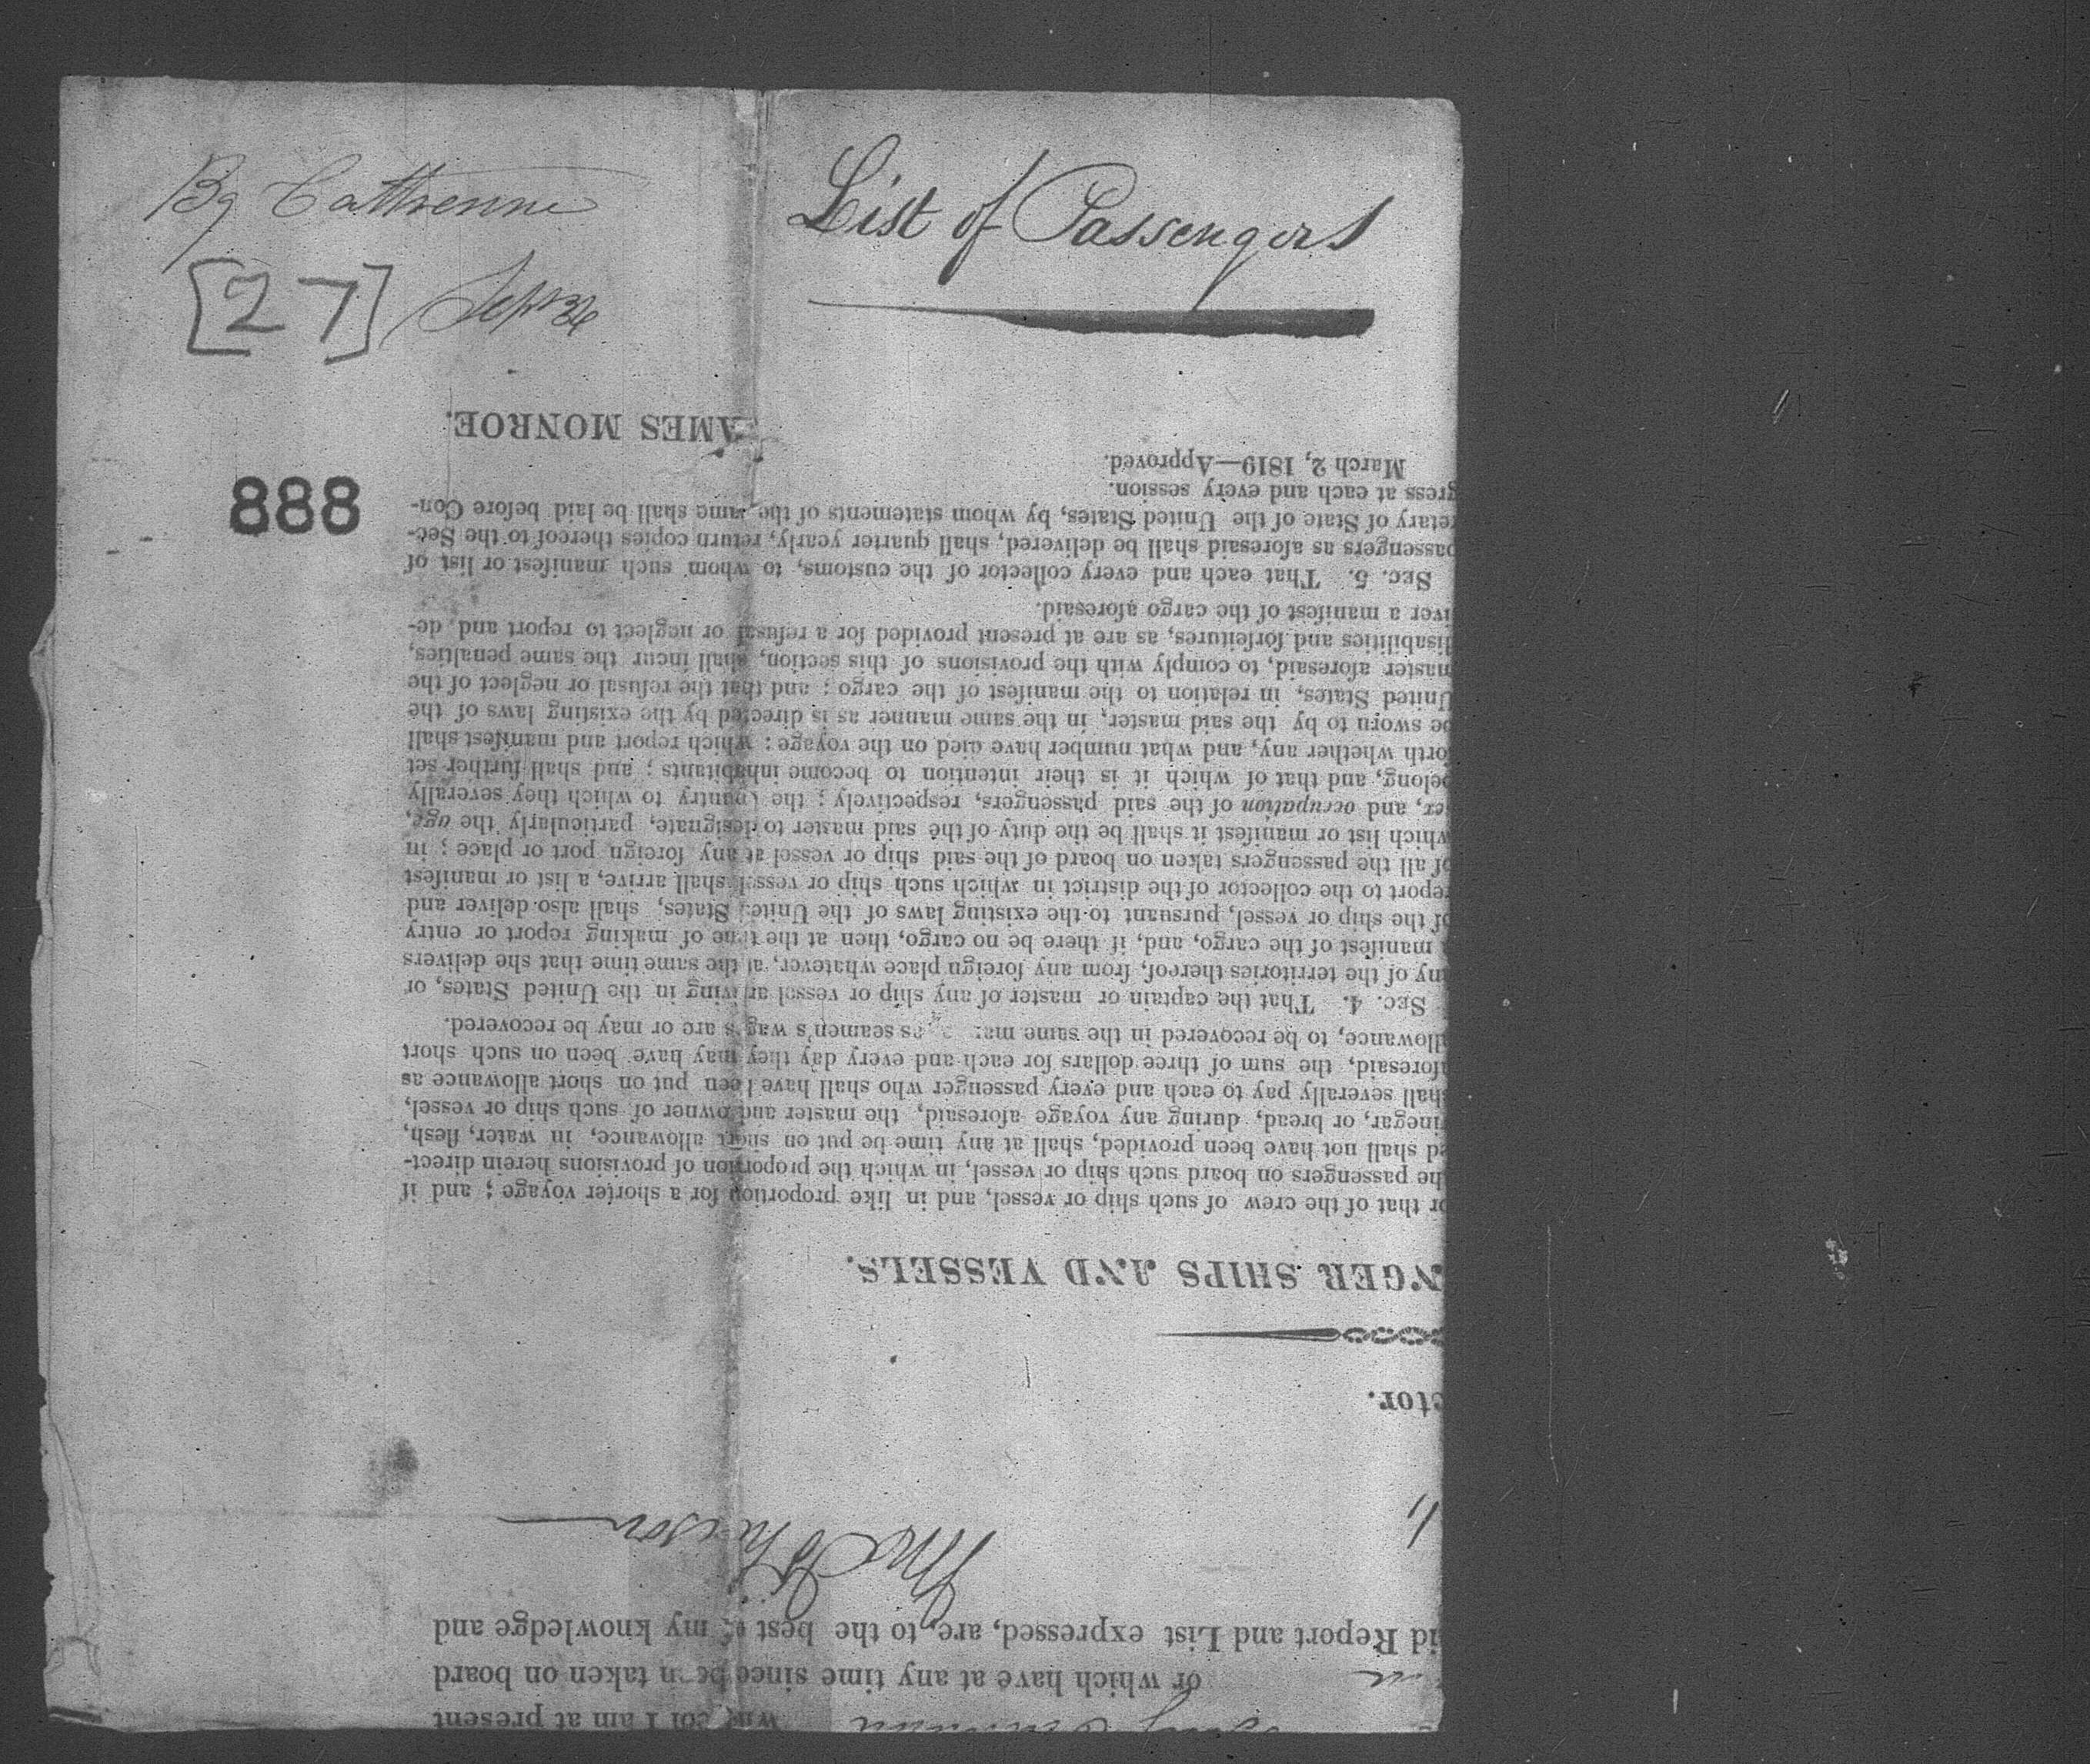 Bg Cathrenne
List of Passengers
[27]
Sept 26
888
id Report and List expressed, are, to the best my knowledge and
or which have at any time since been taken on board
I am at present
ctor.
NGER SHIPS AND VESSELS.
or that of the crew of such ship or vessel, and in like proportion for a shorter voyage; and if
he passengers on board such ship or vessel, in which the proportion of provisions herein direct-
ed shall not have been provided, shall at any time be put on short allowance, in water, flesh,
vinegar, or bread, during any voyage aforesaid, the master and owner of such ship or vessel,
shall severally pay to each and every passenger who shall have been put on short allowance as
aforesaid, the sum of three dollars for each and every day they may have been on such short
allowance, to be recovered in the same as seamen's wages are or may be recovered.
Sec. 4. That the captain or master of any ship or vessel arriving in the United States, or
any of the territories thereof, from any foreign place whatever, at the same time that she delivers
a manifest of the cargo, and, if there be no cargo, then at the time of making report or entry
of the ship or vessel, pursuant to the existing laws of the United States, shall also deliver and
report to the collector of the district in which such ship or vessel shall arrive, a list or manifest
of all the passengers taken on board of the said ship or vessel at any foreign port or place; in
which list or manifest it shall be the duty of the said master to designate, particularly the age,
sex, and occupation of the said passengers, respectively; the country to which they severally
belong, and that of which it is their intention to become inhabitants; and shall further set
forth whether any, and what number have died on the voyage: which report and manifest shall
be sworn to by the said master, in the same manner as is directed by the existing laws of the
United States, in relation to the manifest of the cargo; and that the refusal or neglect of the
master aforesaid, to comply with the provisions of this section, shall incur the same penalties,
disabilities and forfeitures, as are at present provided for a refusal or neglect to report and de-
liver a manifest of the cargo aforesaid.
Sec. 5. That each and every collector of the customs, to whom such manifest or list of
passengers as aforesaid shall be delivered, shall quarter yearly, return copies thereof to the Sec-
retary of State of the United States, by whom statements of the same shall be laid before Con-
gress at each and every session.
March 2, 1819—Approved.
AMES MONROE.